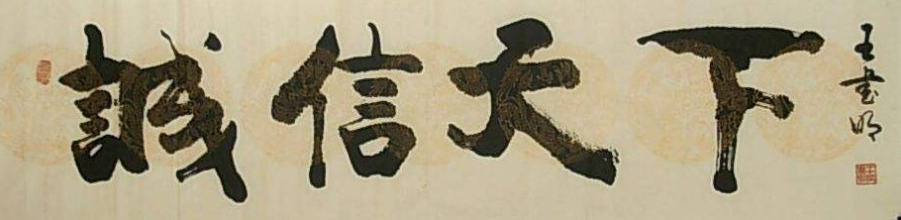 誠信天下
王書明